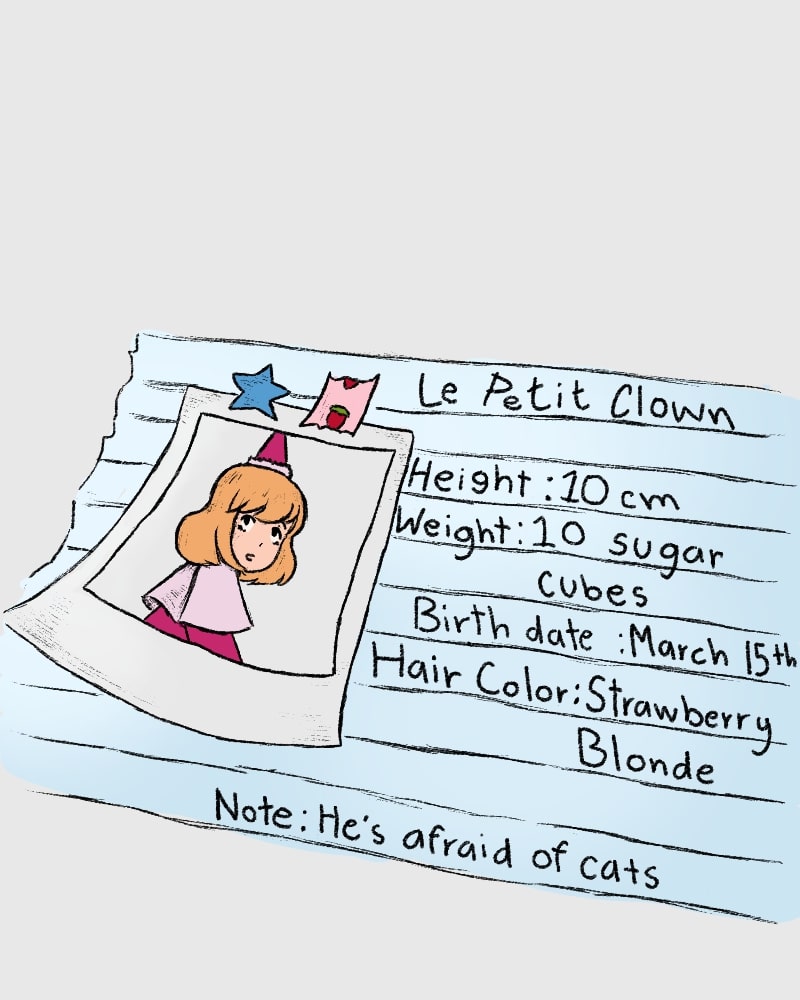 Le Petit Clown
Height : 10 cm
Weight: 10 sugar
cubes
Birth date : March 15th
Hair Color: Strawberry
Blonde
Note: He's afraid of cats